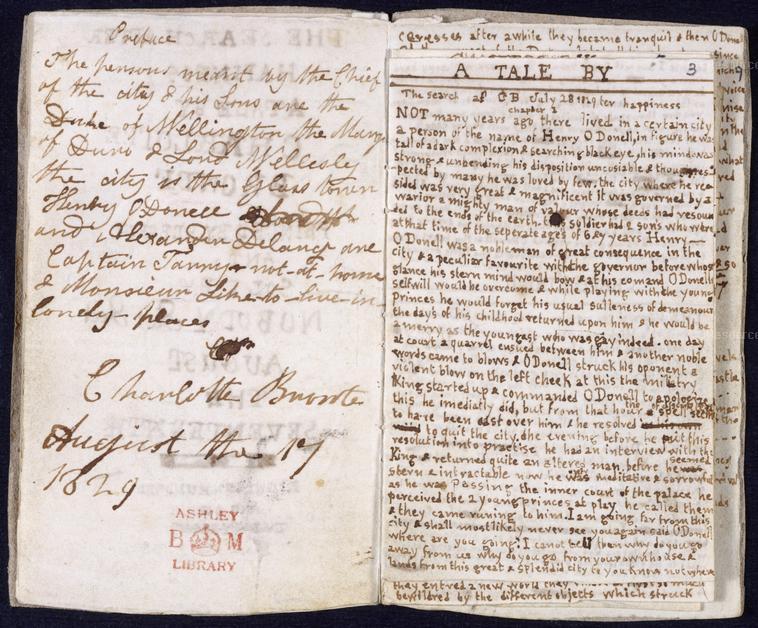 Preface
The persons meant by the Chief
of the city & his Sons are the
Duke of Wellington the Marq
of Duro & Lord Wellesley
the city is the Glass town
Henry ODonell
and Alexander Delancy are
Captain Tarry-not-at-home
& Monsieur Like-to-live-in
lonely-places
Charlotte Bronte
August the 17
1829
ASHLEY
B M
LIBRARY
caresses after awhile they became tranquil & then O Done
A TALE BY 3
The search af CB July 28 1829 ter happiness
chapter 1
NOT many years ago there lived in a certain city
a person of the name of Henry O Donell, in figure he was
tall of a dark complexion & searching black eye, his mind was
strong & unbending his disposition unsosiable & though res-
pected by many he was loved by few. the city where he re-
sided was very great & magnificent it was governed by a
warior a mighty man of valour whose deeds had resoun
ded to the ends of the earth, this soldier had 2 sons who were
at that time of the seperate ages of 6 & 7 years Henry
O Donell was a nobleman of great consequence in the
city & a peculiar favourite with the governor before whose
glance his stern mind would bow & at his comand O Donells
selfwill would be overcome & while playing with the young
princes he would forget his usual sulleness of demeanour
the days of his childhood returned upon him & he would be
a merry as the youngest who was gay indeed. one day
at court a quarrel ensued between him & another noble
words came to blows & O Donell struck his oponent a
violent blow on the left cheek at this the military
King started up & commanded O Donell to apologize
this he imediatly did, but from that hour a spell seem
to have been cast over him & he resolved
to quit the city. the evening before he put this
resolution into practise he had an interview with the
King & returned quite an altered man. before he seemed
stern & intractable now he was meditative & sorrowful
as he was Passing the inner court of the palace he
perceived the 2 young princes at play he called them
& they came runing to him. I am going far from this
city & shall most likely never see you again said O Donell
where are you going. I canot tell then why do you go
away from us why do you go from your own house &
lands from this great & splendid city to you know not where
they entred a new world they
bewildred by the different objects which struck